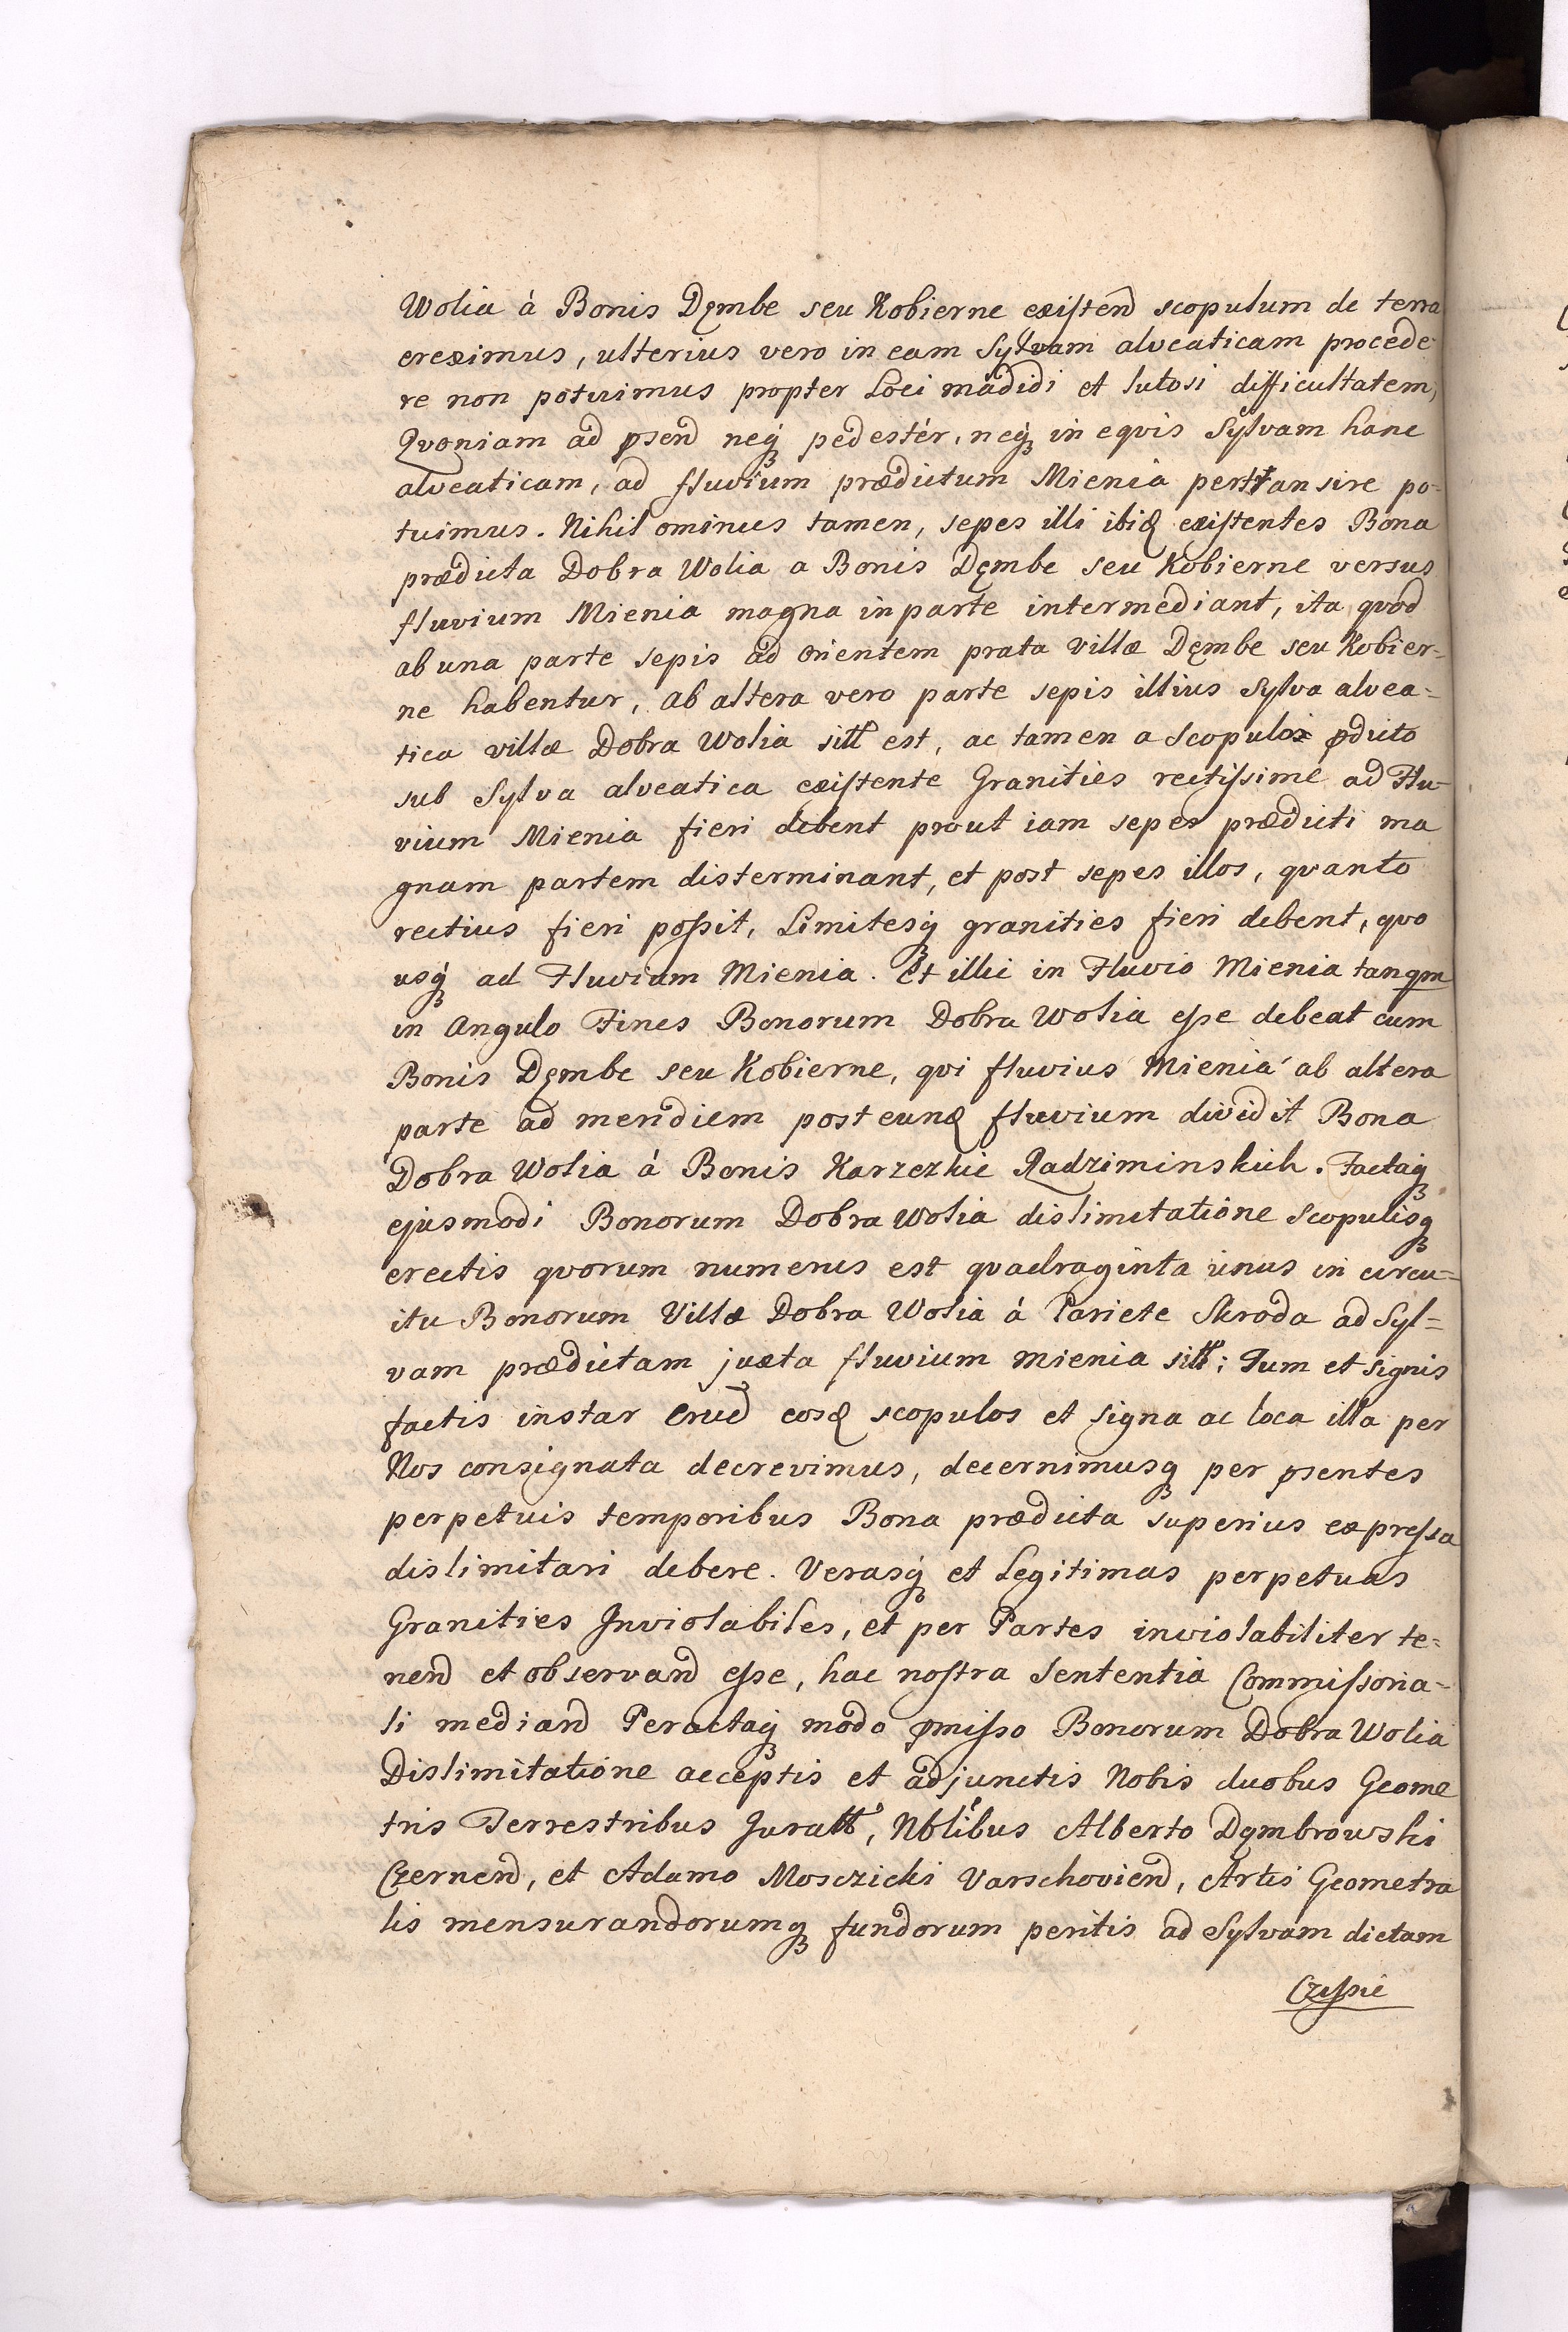 Wolia á Bonis Dęmbe seu Kobierne existend scopulum de terra
ereximus, ulterius vero in eam Sylvam alveaticam procede-
re non potuimus propter Loci madidi et lutosi difficultatem,
Qvoniam ad psend neqꝫ pedestér, neqꝫ in eqvis Sylvam hanc
alveaticam, ad fluvium prædictum Mienia pertransire po-
tuimus. Nihil ominus tamen, sepes illi ibiđ existentes Bona
prædicta Dobra Wolia a Bonis Dęmbe seu Kobierne versus
fluvium Mienia magna in parte intermediant, ita qvod
ab una parte sepis ad Orientem prata villæ Dęmbe seu Kobier-
ne habentur, ab altera vero parte sepis illius Sylva alvea-
tica villæ Dobra Wolia sitt est, ac tamen a Scopulo pdicto
sub Sylva alveatica existente Granities rectissimé ad Flu-
vium Mienia fieri debent prout iam sepes prædicti ma
gnam partem disterminant, et post sepes illos, qvanto
rectius fieri possit, Limitesqꝫ granities fieri debent, qvo
usqꝫ ad Fluvium Mienia. Et illic in Fluvio Mienia tanqm
in Angulo Fines Bonorum Dobra Wolia esse debeat cum
Bonis Dęmbe seu Kobierne, qvi fluvius Mienia ab altera
parte ad meridiem post eunđ fluvium dividit Bona
Dobra Wolia á Bonis Karzczkie Radziminskich. Factaqꝫ
ejusmodi Bonorum Dobra Wolia dislimitatione Scopulisqꝫ
erectis qvorum numerus est qvadraginta unus in circu-
itu Bonorum Villæ Dobra Wolia á Pariete Skroda ad Syl-
vam prædictam juxta fluvium Mienia sitt; Tum et signis
factis instar Crud eosđ scopulos et signa ac loca illa per
Nos consignata decrevimus, decernimusqꝫ per psentes
perpetuis temporibus Bona prædicta superius expressa
dislimitari debere. Verasqꝫ et Legitimas perpetuas
Granities Inviolabiles, et per Partes inviolabiliter te-
nend et observand esse, hac nostra Sententia Commissoria-
li mediand Peractaqꝫ modo pmisso Bonorum Dobra Wolia
Dislimitatione acceptis et adjunctis Nobis duobus Geome
tris Terrestribus Juratt, Nblibus Alberto Dąmbrowski
Czernend, et Adamo Mosczicki Varschoviend, Artis Geometra
lis mensurandorumqꝫ fundorum peritis ad Sylvam dictam
Czessie